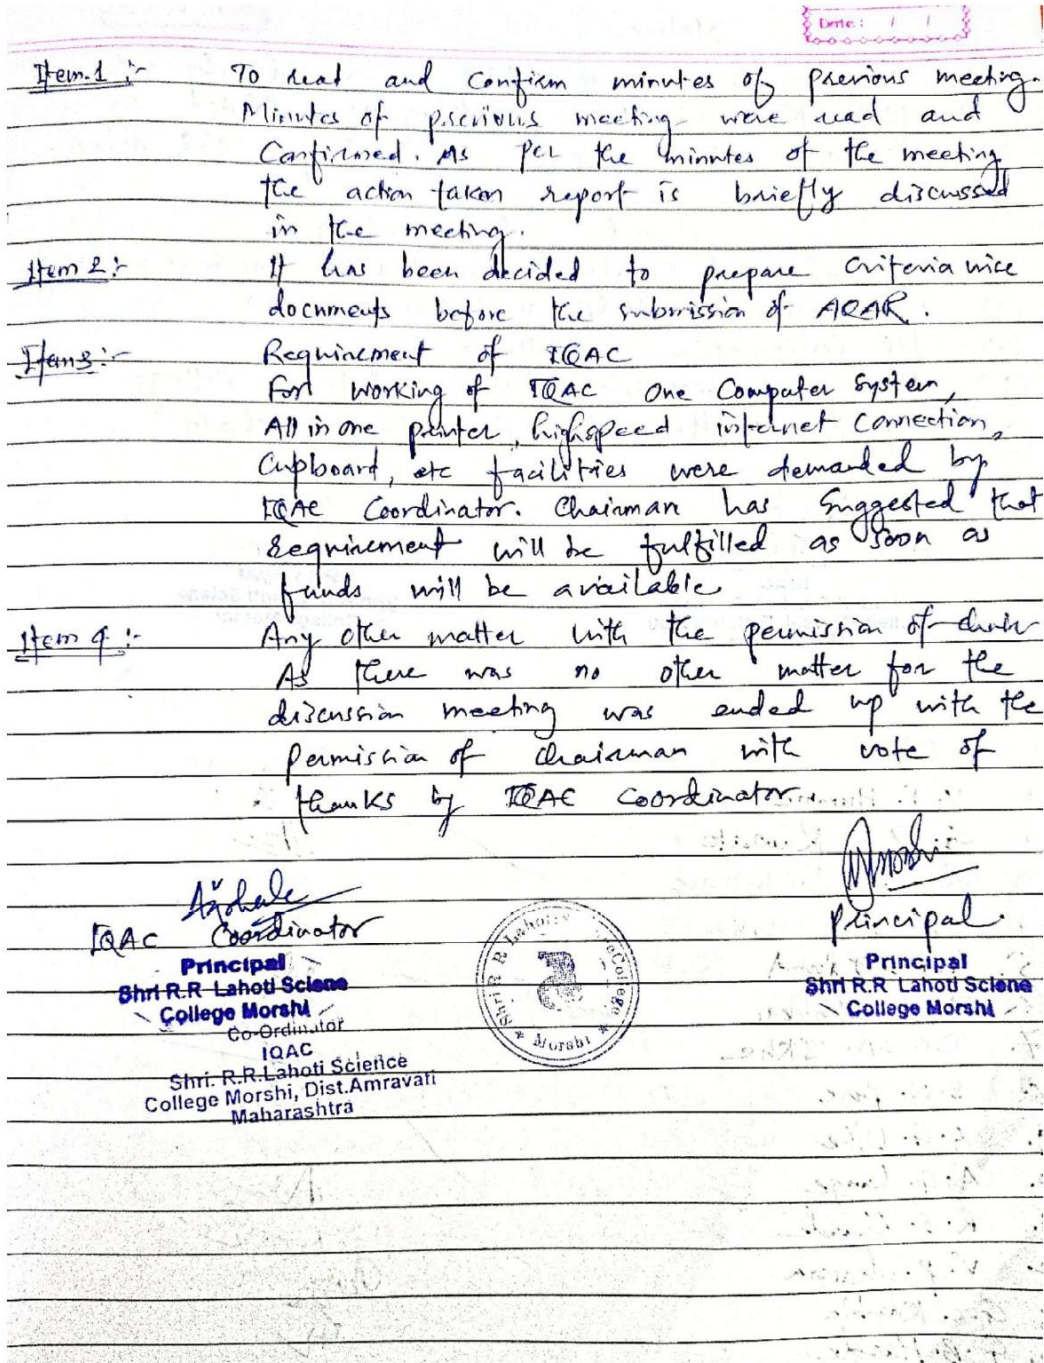 Date: / /
Item.1 :- To read and confirm minutes of previous meeting.
Minutes of previous meeting were read and
Confirmed. As per the minutes of the meeting
the action taken report is briefly discussed
in the meeting.
Item 2:- It has been decided to prepare Criteria wise
documents before the submission of AQAR.
Item 3:- Requirement of IQAC
For working of IQAC One Computer System,
All in one printer, highspeed internet Connection,
Cupboard, etc facilities were demanded by
IQAC Coordinator. Chairman has Suggested that
requirement will be fulfilled as soon as
funds will be available
Item 4:- Any other matter with the permission of chair
As there was no other matter for the
discussion meeting was ended up with the
Permission of Chairman with vote of
thanks by IQAC Coordinator.
IQAC Coordinator
Principal
Shri R.R Lahoti Sciene
College Morshi
Co-Ordinator
IQAC
Shri. R.R.Lahoti Science
College Morshi, Dist.Amravati
Maharashtra
Shri R R Lahoti College
* Morshi *
Principal
Principal
Shri R.R Lahoti Sciene
College Morshi